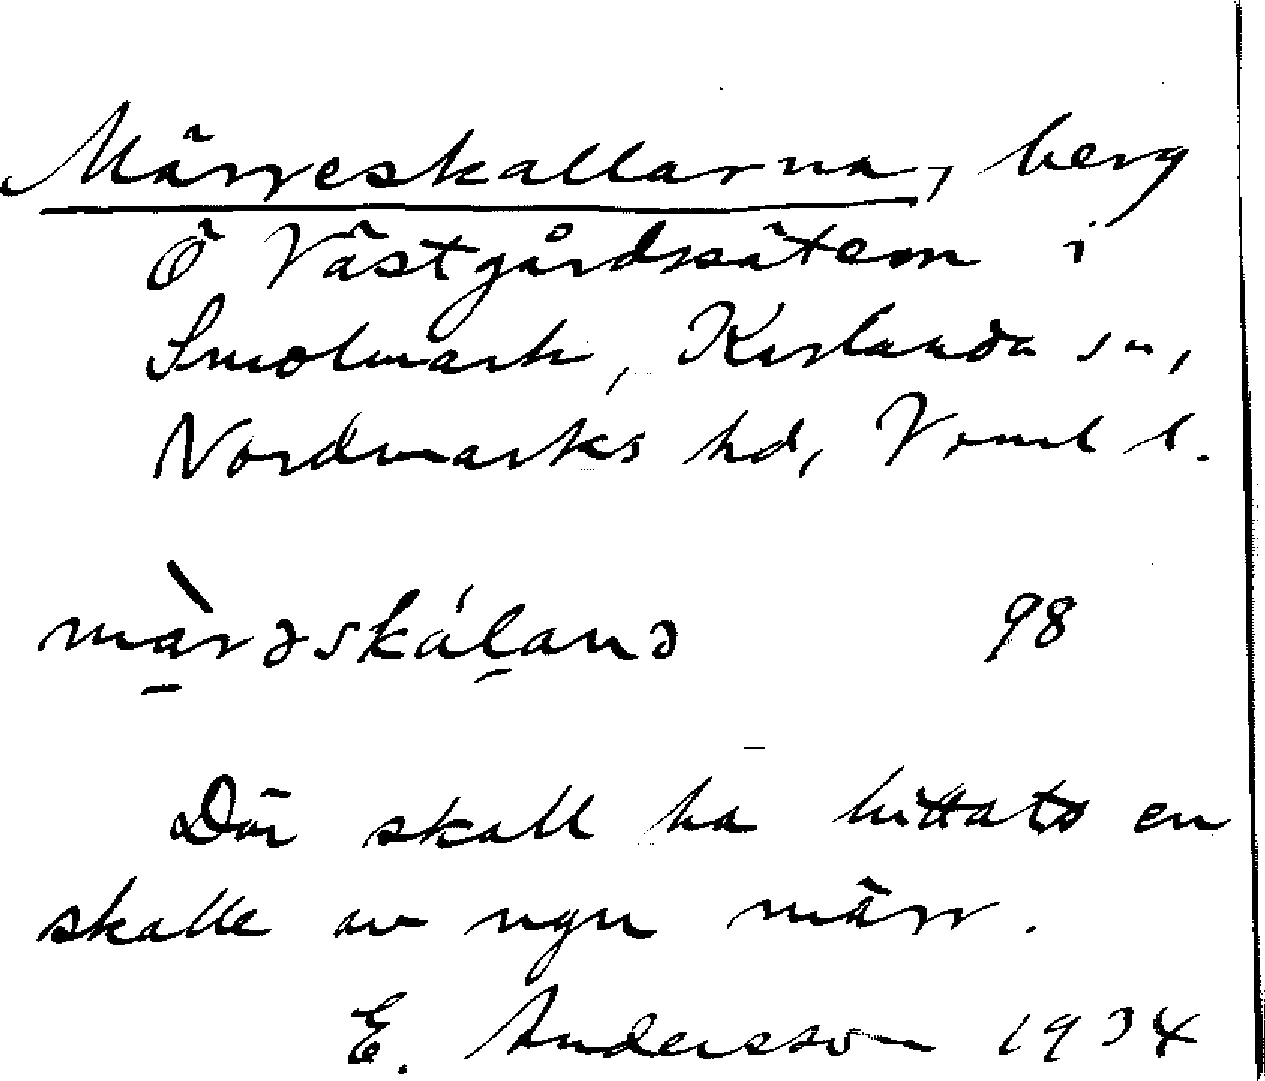 Märreskallarna, berg
Ö Västgårdssätern i
Smolmark, Karlanda sn,
Nordmarks hd, Vrml l.
màrəskálanə 98
Där skall ha hittats en
skalle av ngn märr.
E. Andersson 1934